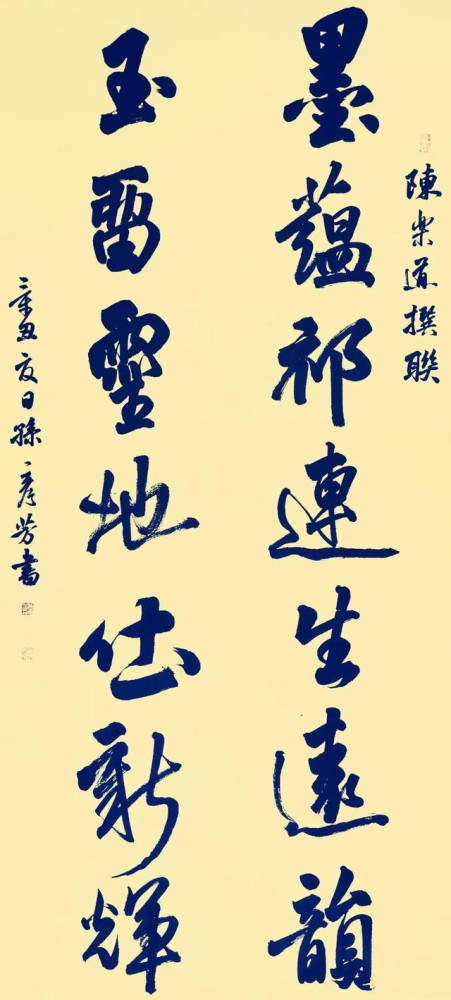 陳樂道撰聯
墨蘊祁連生遠韻
玉畱靈地新輝
辛丑夏日孫彥芳書